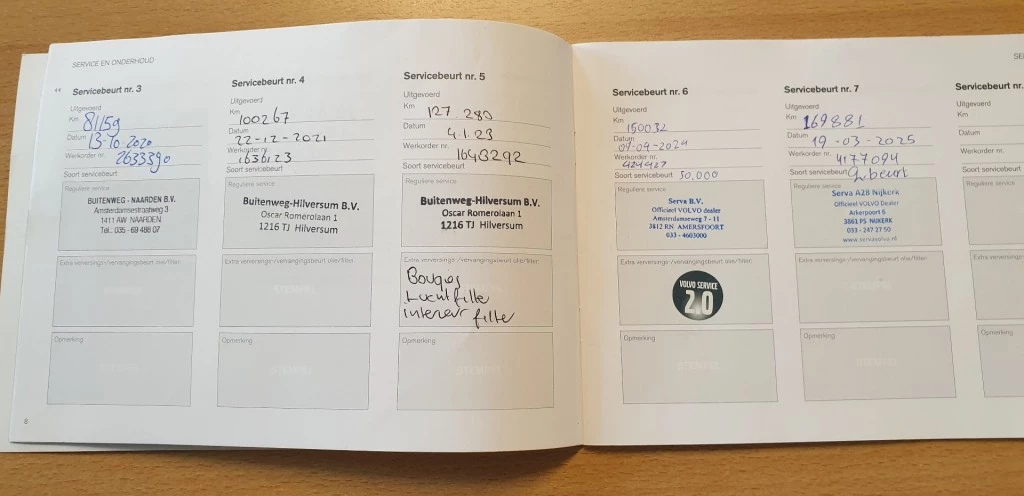 SERVICE EN ONDERHOUD
Servicebeurt nr. 3
Uitgevoerd
Km 81159
Datum 13-10-2020
Werkorder nr. 2633390
Soort servicebeurt
Reguliere service
BUITENWEG - NAARDEN B.V.
Amsterdamsestraatweg 3
1411 AW NAARDEN
Tel.: 035 - 69 488 07
Extra verversings-/vervangingsbeurt olie/filter:
STEMPEL
Opmerking
STEMPEL
8
Servicebeurt nr. 4
Uitgevoerd
Km 100267
Datum 22-12-2021
Werkorder nr. 1636123
Soort servicebeurt
Reguliere service
Buitenweg-Hilversum B.V.
Oscar Romerolaan 1
1216 TJ Hilversum
Extra verversings-/vervangingsbeurt olie/filter:
STEMPEL
Opmerking
STEMPEL
Servicebeurt nr. 5
Uitgevoerd
Km 127.280
Datum 4.1.23
Werkorder nr. 1643292
Soort servicebeurt
Reguliere service
Buitenweg-Hilversum B.V.
Oscar Romerolaan 1
1216 TJ Hilversum
Extra verversings-/vervangingsbeurt olie/filter:
Bougies
Luchtfilter
interieur filter
Opmerking
STEMPEL
Servicebeurt nr. 6
Uitgevoerd
Km 150032
Datum 09-09-2024
Werkorder nr. 424427
Soort servicebeurt 50.000
Reguliere service
Serva B.V.
Officieel VOLVO dealer
Amsterdamseweg 7 - 11
3812 RN AMERSFOORT
033 - 4603000
Extra verversings-/vervangingsbeurt olie/filter:
VOLVO SERVICE
2.0
Opmerking
STEMPEL
Servicebeurt nr. 7
Uitgevoerd
Km 169881
Datum 19-03-2025
Werkorder nr. 4177094
Soort servicebeurt beurt
Reguliere service
Serva A28 Nijkerk
Officieel VOLVO Dealer
Arkerpoort 6
3861 PS NIJKERK
033 - 247 27 50
www.servavolvo.nl
Extra verversings-/vervangingsbeurt olie/filter:
STEMPEL
Opmerking
STEMPEL
Servicebeurt nr.
Uitgevoerd
Km
Datum
Werkorder nr.
Soort servicebeurt
Reguliere service
Opmerking